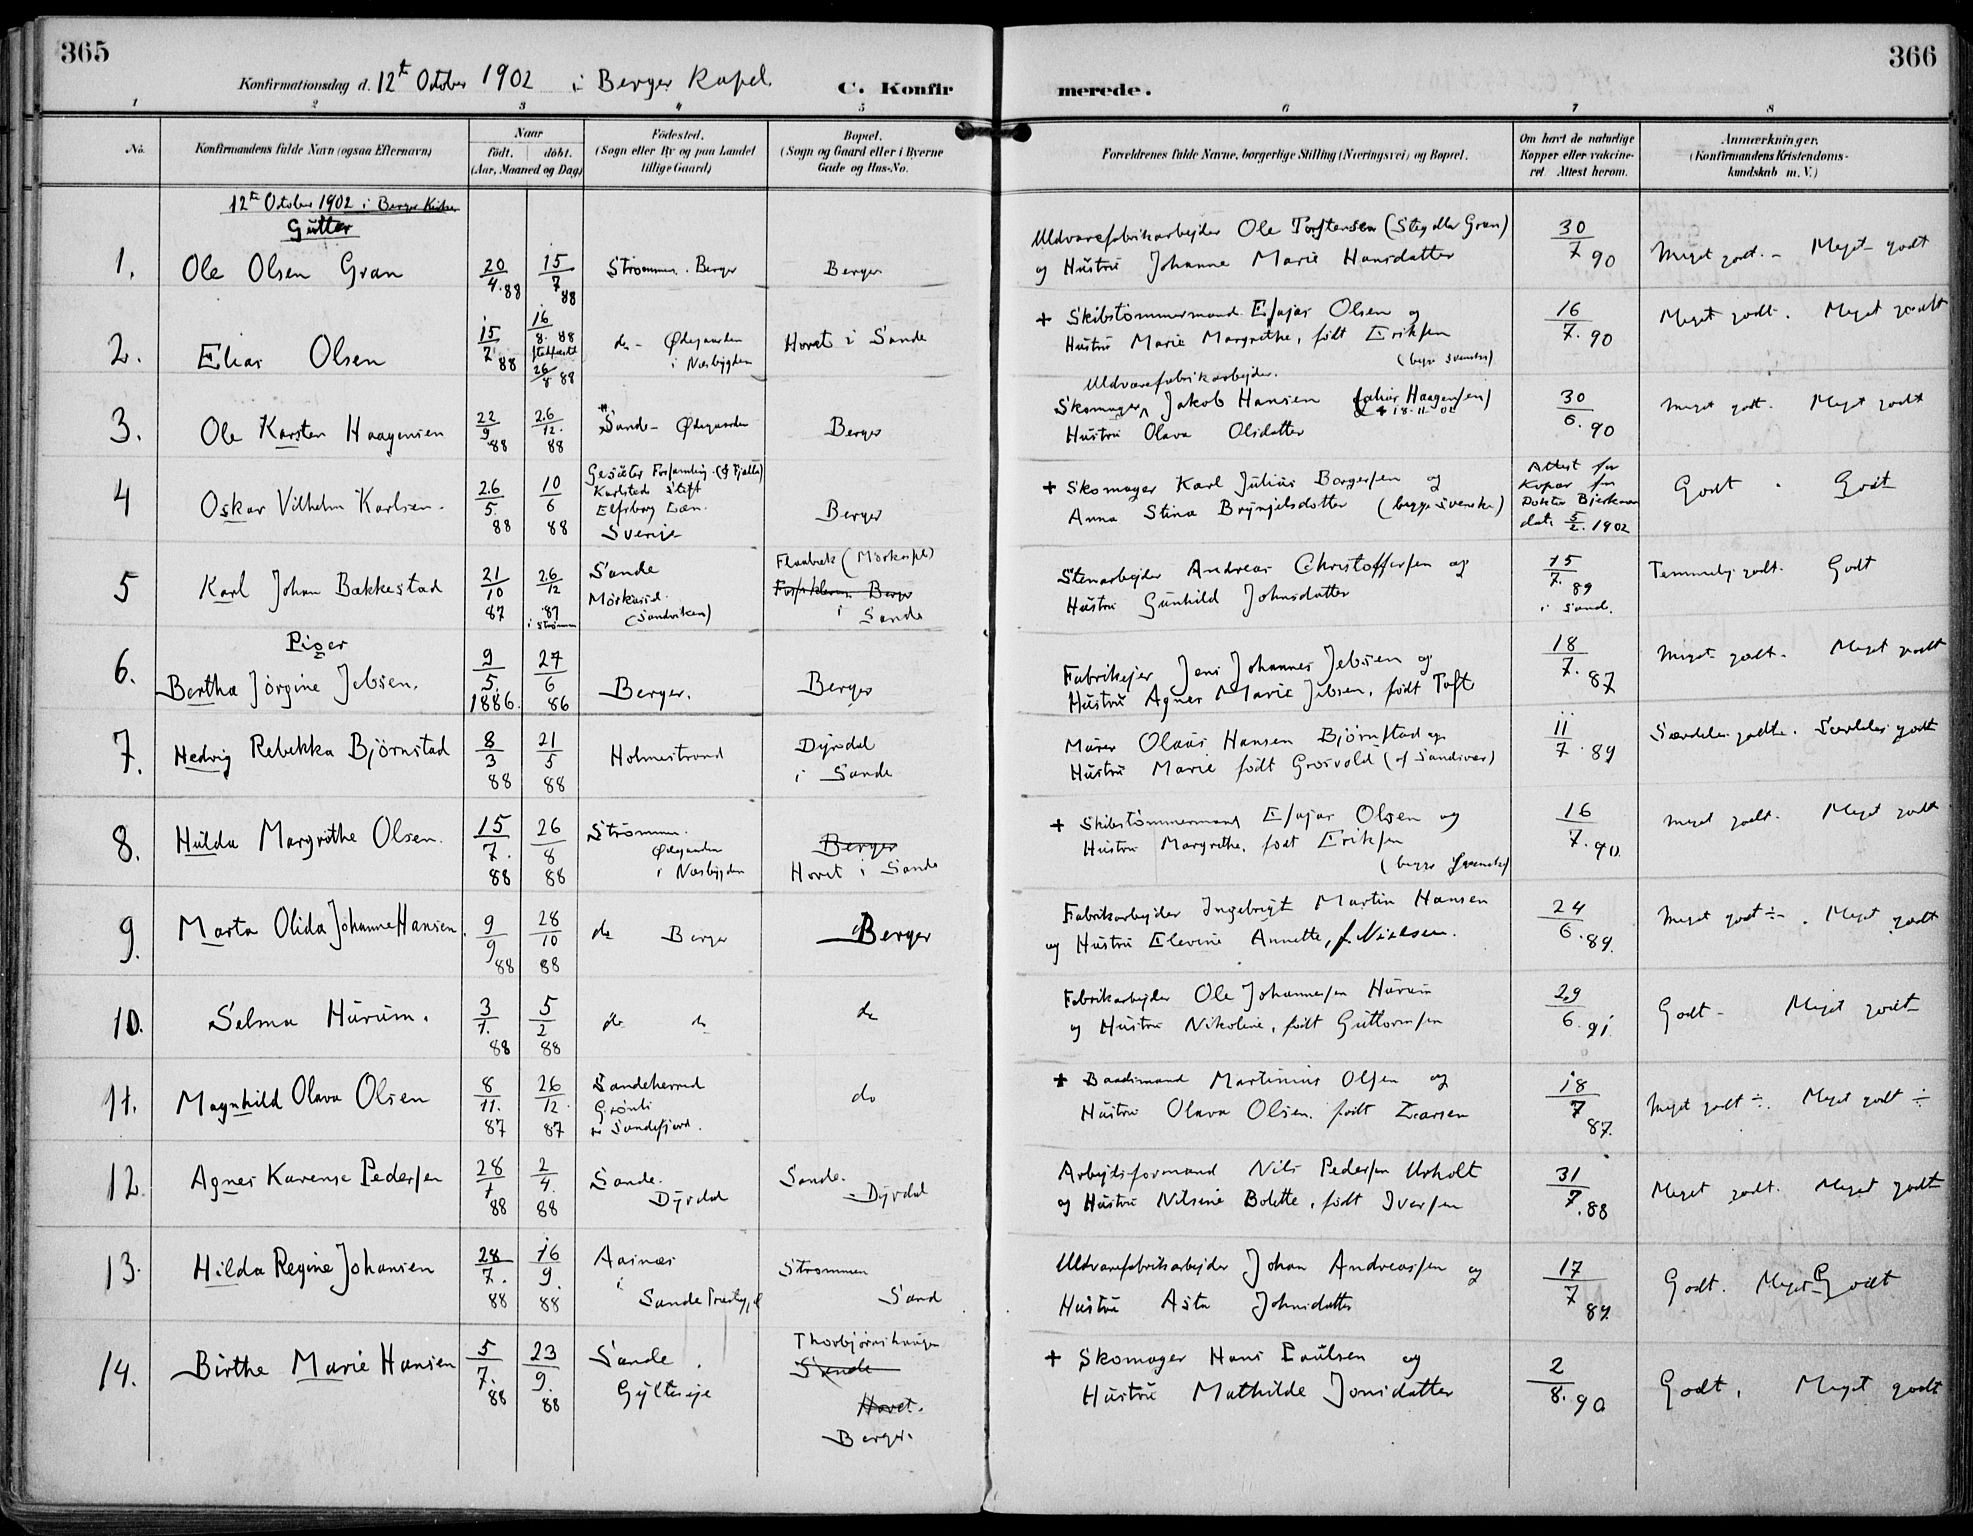 365
366
Konfirmationsdag d. 12te October 1902 i Berger Kapel.
C. Konfirmerede.
1 2 3 4 5 6 7 8
No.
Konfirmandens fulde Navn (ogsaa Efternavn)
Naar
født. døbt.
(Aar, Maaned og Dag)
Fødested.
(Sogn eller By og paa Landet
tillige Gaard)
Bopæl.
(Sogn og Gaard eller i Byerne
Gade og Hus-No.
Forældrenes fulde Navne, borgerlige Stilling (Næringsvei) og Bopæl.
Om havt de naturlige
Kopper eller vakcine-
ret Attest herom.
Anmærkninger.
(Konfirmandens Kristendoms-
kundskab m. V.)
12te October 1902 i Berger
Gutter
1. Ole Olsen Gran 20/4.88 15/7 88 Strømmen. Berger Berger
Uldvarefabrikarbejder Ole Torstensen (Steg eller Gran)
og Hustru Johanne Marie Hansdatter 30/7 90 Meget godt. - Meget godt
2. Elias Olsen 15/7 88 16/8. 88 26/8 88 do - Ødegaarden
i Nesbygden Hovet i Sande
+ Skibstømmermand Esajas Olsen og
Hustru Marie Margrethe, født Eriksen
(begge svenske) 16/7.90 Meget godt. Meget godt
3. Ole Karsten Haagensen 22/9 88 26/12. 88 Sande - Ødegaarden Berger
Uldvarefabrikarbejder.
Skomager Jakob Hansen Haagensen)
Hustru Olava Olsdatter 30/6.90 Meget godt. Meget godt
4 Oskar Vilhelm Karlsen. 26/5. 88 10/6 88
Karlsted Stift
Elfsborg Læn.
Sverige Berger
+ Skomager Karl Julius Borgersen og
Anna Stina Bryngelsdatter (begge svenske)
Attest for
Kopar fra
Doktor Bjerknes
dat. 5/2. 1902 Godt. Godt
5 Karl Johan Bakkestad 21/10 87 26/12 87 i Strømmen
Sande
(Sandviken)
Berger
i Sande
Stenarbejder Andreas Christoffersen og
Hustru Gunhild Johnsdatter 15/7. 89
i Sand. Temmelig godt. Godt
Piger
6. Bertha Jørgine Jebsen. 9/5. 1886. 27/6 86 Berger. Berger
Fabrikejer Jens Johannes Jebsen og
Hustru Agnes Marie Jebsen, født Toft 18/7. 87 Meget godt. Meget godt
7. Hedvig Rebekka Bjørnstad 8/3 88 21/5 88 Holmestrand Dyrdal
i Sande
Murer Olaus Hansen Bjørnstad og
Hustru Marie født Grosvold 11/7 89 Særdeles godt. Særdeles godt
8. Hilda Margrethe Olsen. 15/7. 88 26/8 88 Strømmen.
Ødegaarden
i Nesbygden
Berger
Hovet i Sande
+ Skibstømmermand Esajas Olsen og
Hustru Margrethe, født Eriksen
(begge svenske) 16/7.90. Meget godt. Meget godt
9. Marta Olida Johanne Hansen. 9/9 88 28/10 88 do Berger Berger
Fabrikarbejder Ingebrigt Martin Hansen
og Hustru Elevine Annette, f. Nielsen. 24/6.89. Meget godt ÷. Meget godt
10. Selma Hurum. 3/1. 88 5/2 88 do do do
Fabrikarbejder Ole Johannesen Hurum
og Hustru Nikoline, født Guttormsen 29/6.91. Godt - Meget godt
11. Magnhild Olava Olsen 8/11. 87 26/12. 87 Sandeherred
Grønli
Sandefjord. do
+ Baadsmand Martinius Olsen og
Hustru Olava Olsen. født Larsen 18/7 87. Meget godt ÷. Meget godt ÷
12. Agnes Karense Pedersen 28/1 88 2/4. 88 Sande.
Dyrdal Sande.
- Dyrdal
Arbejdsformand Nils Pedersen Urholt
og Hustru Nilsine Bolette, født Iversen 31/7.88 Meget godt. Meget godt
13. Hilda Regine Johansen 28/7. 88 16/9. 88 Aasnæs
i
Sande Præstegjeld Strømmen
Sand
Uldvarefabrikarbejder Johan Andreassen og
Hustru Asta Johnsdatter 17/7 87. Godt. Meget Godt
14. Birthe Marie Hansen 5/7. 88 23/9. 88 Sande.
Thorbjørnshaugen
Sande
Hovet.
Berger.
+ Skomager Hans Paulsen og
Hustru Mathilde Jonsdatter 2/8.90 Godt. Meget godt